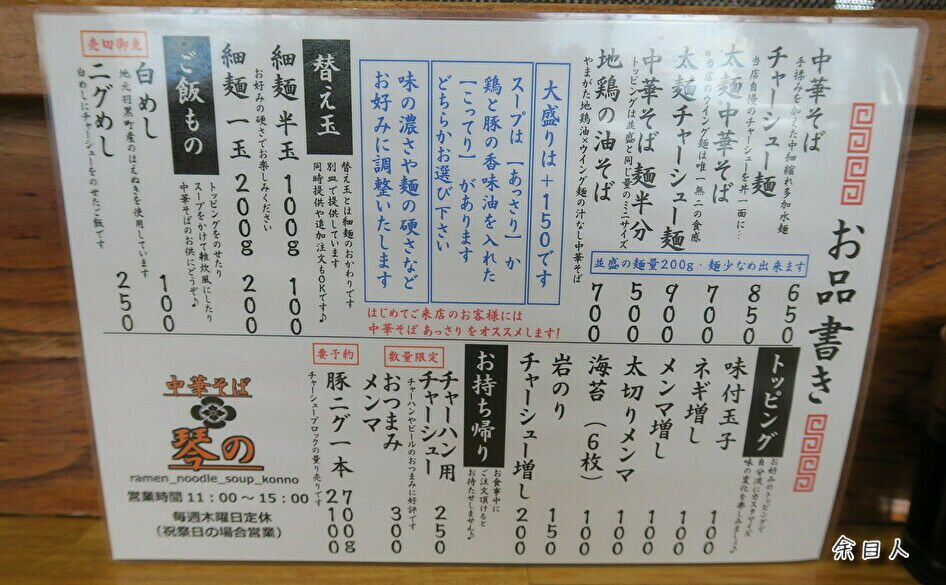 お品書き
中華そば 650
手揉みをかけた中細縮れ多加水麺
チャーシュー麺 850
当店自慢のチャーシューを丼一面に…
太麺中華そば 700
当店のウイング麺は唯一無二の食感
太麺チャーシュー麺 900
中華そば麺半分 500
トッピングは並盛と同じ量のミニサイズ
地鶏の油そば 700
やまがた地鶏油×ウイング麺の汁なし中華そば
並盛の麺量200g・麺少なめ出来ます
大盛りは+150です
スープは【あっさり】か
鶏と豚の香味油を入れた
【こってり】があります
どちらかお選び下さい
味の濃さや麺の硬さなど
お好みに調整いたします
はじめてご来店のお客様には
中華そば あっさりをオススメします!
替え玉
替え玉とは細麺のおかわりです
別皿で提供しています
同時提供や追加注文もOKです♪
細麺 半玉 100g 100
お好みの硬さでお楽しみください
細麺 一玉 200g 200
ご飯もの
トッピングをのせたり
スープをかけて雑炊風にしたり
中華そばのお供にどうぞ♪
売切御免
白めし 100
地元羽黒町産のはえぬきを使用しています
ニグめし 250
白めしにチャーシューをのせたご飯です
トッピング
お好みのトッピングで
自分流にカスタマイズ
味の変化を楽しみましょ♪
味付玉子 100
ネギ増し 100
メンマ増し 100
太切りメンマ 100
海苔(6枚) 100
岩のり 150
チャーシュー増し 200
お持ち帰り
お食事中に
ご注文頂けると
お待たせしません♪
数量限定
チャーハン用
チャーシュー 250
チャーハンやビールのおつまみに好評です
おつまみ
メンマ 300
要予約
豚ニグ一本 700g 2100
チャーシューブロックの量り売りです
中華そば
琴の
ramen_noodle_soup_konno
営業時間 11:00～15:00
毎週木曜日定休
(祝祭日の場合営業)
余目人